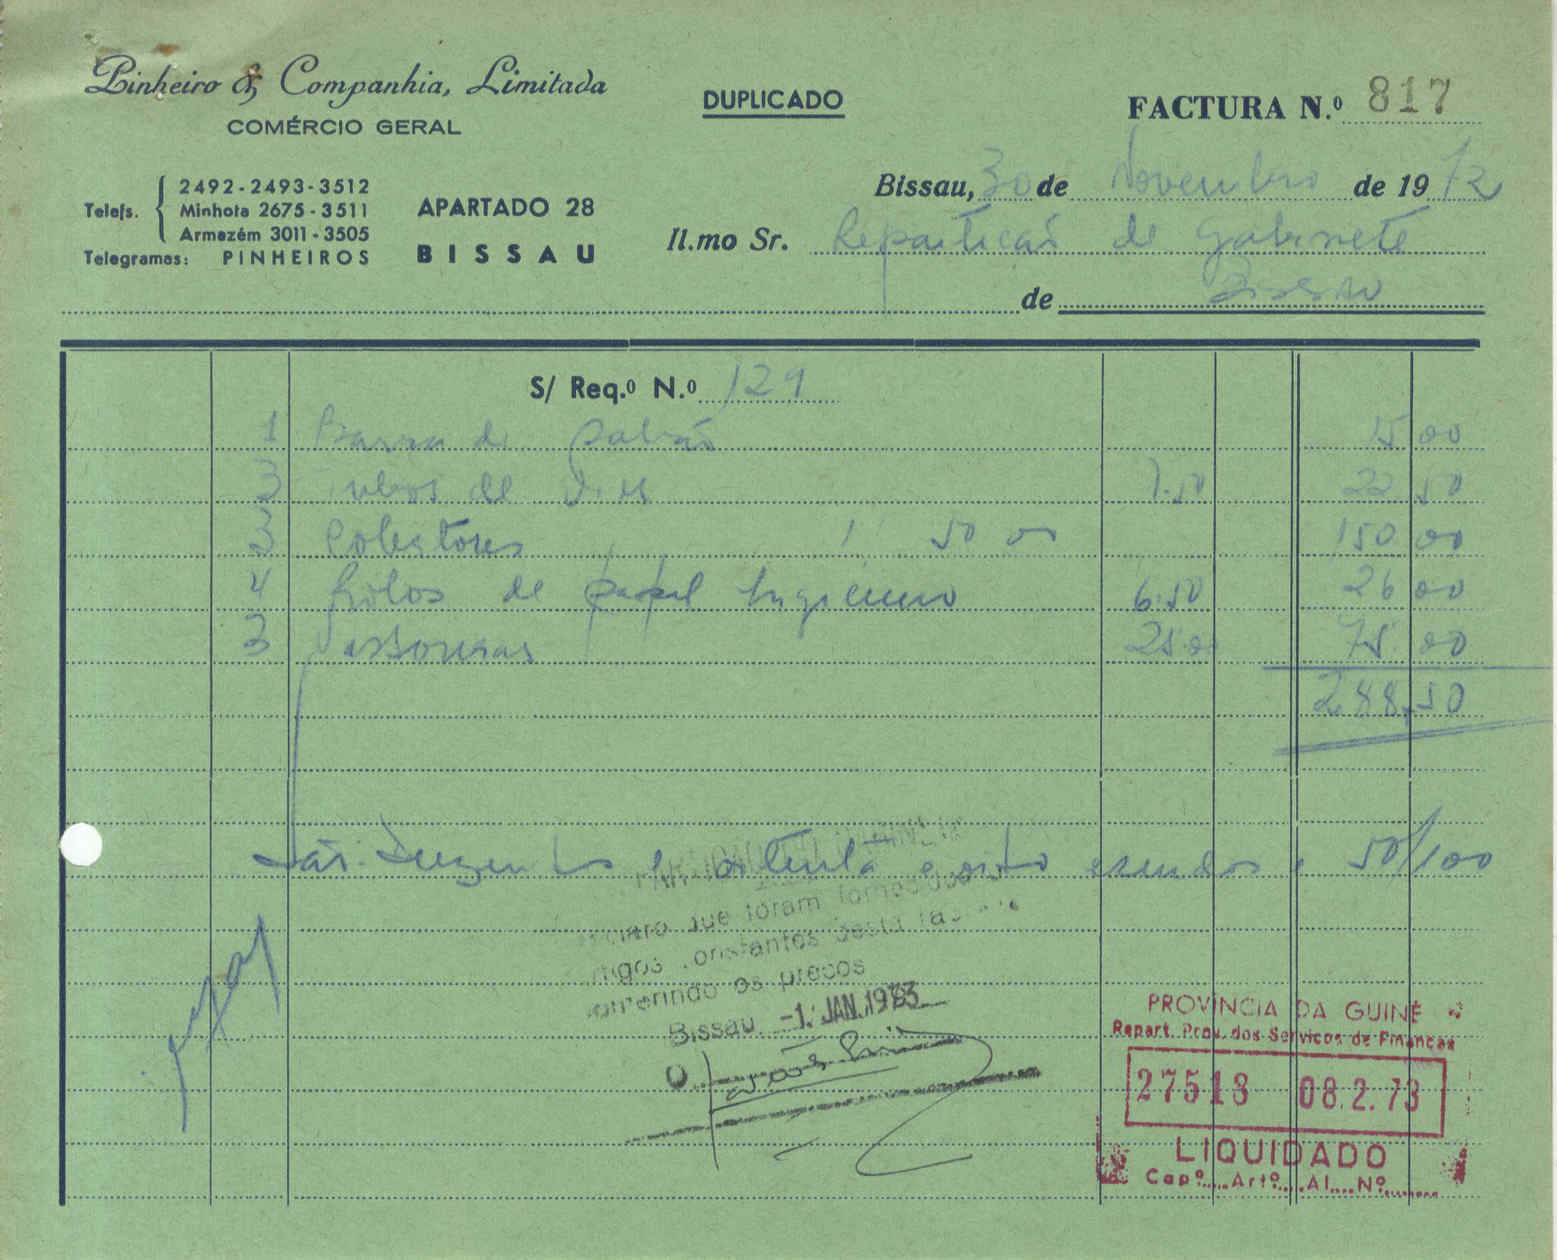 Pinheiro & Companhia, Limitada
COMÉRCIO GERAL
DUPLICADO
FACTURA N.º 817
Telefs. 2492-2493-3512
Minhota 2675-3511
Armazém 3011-3505
Telegramas: PINHEIROS
APARTADO 28
BISSAU
Bissau, 30 de Novembro de 1972
Il.mo Sr. Repartição de Gabinete
de Bissau
S/ Req.º N.º 129
1 Barra de sabão 15 00
3 Tubos de 7.50 22 50
3 50 00 150 00
4 Rolos de papel higienico 6.50 26 00
3 Vassouras 25.00 75.00
288,50
São: Duzentos e oitenta e oito escudos e 50/100
Declaro que foram fornecidos os
artigos constantes desta factura
conferindo os preços
Bissau -1. JAN. 1973
O
PROVÍNCIA DA GUINÉ
Repart. Prov. dos Serviços de Finanças
27513 08.2.73
LIQUIDADO
Capº.....Artº....Al....Nº........